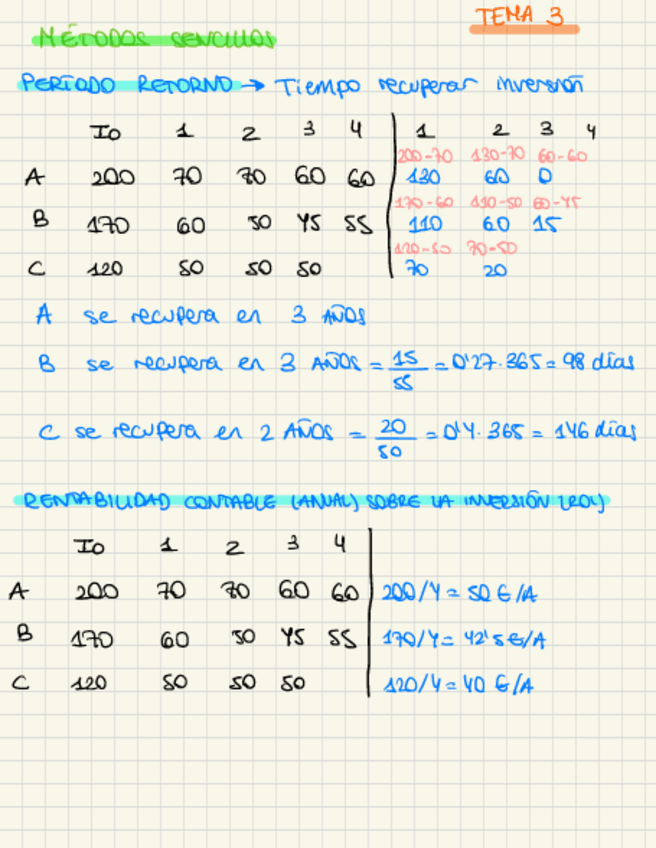 TEMA 3
MÉTODOS SENCILLOS
PERÍODO RETORNO → Tiempo recuperar inversión
Io 1 2 3 4 1 2 3 4
200-70 130-70 60-60
A 200 70 70 60 60 130 60 0
170-60 110-50 60-45
B 170 60 50 45 55 110 60 15
120-50 70-50
C 120 50 50 50 70 20
A se recupera en 3 AÑOS
B se recupera en 3 AÑOS = 15/55 = 0'27·365 = 98 días
C se recupera en 2 AÑOS = 20/50 = 0'4·365 = 146 días
RENTABILIDAD CONTABLE (ANUAL) SOBRE LA INVERSIÓN (ROI)
Io 1 2 3 4
A 200 70 70 60 60 200/4 = 50 €/A
B 170 60 50 45 55 170/4 = 42'5 €/A
C 120 50 50 50 120/4 = 40 €/A